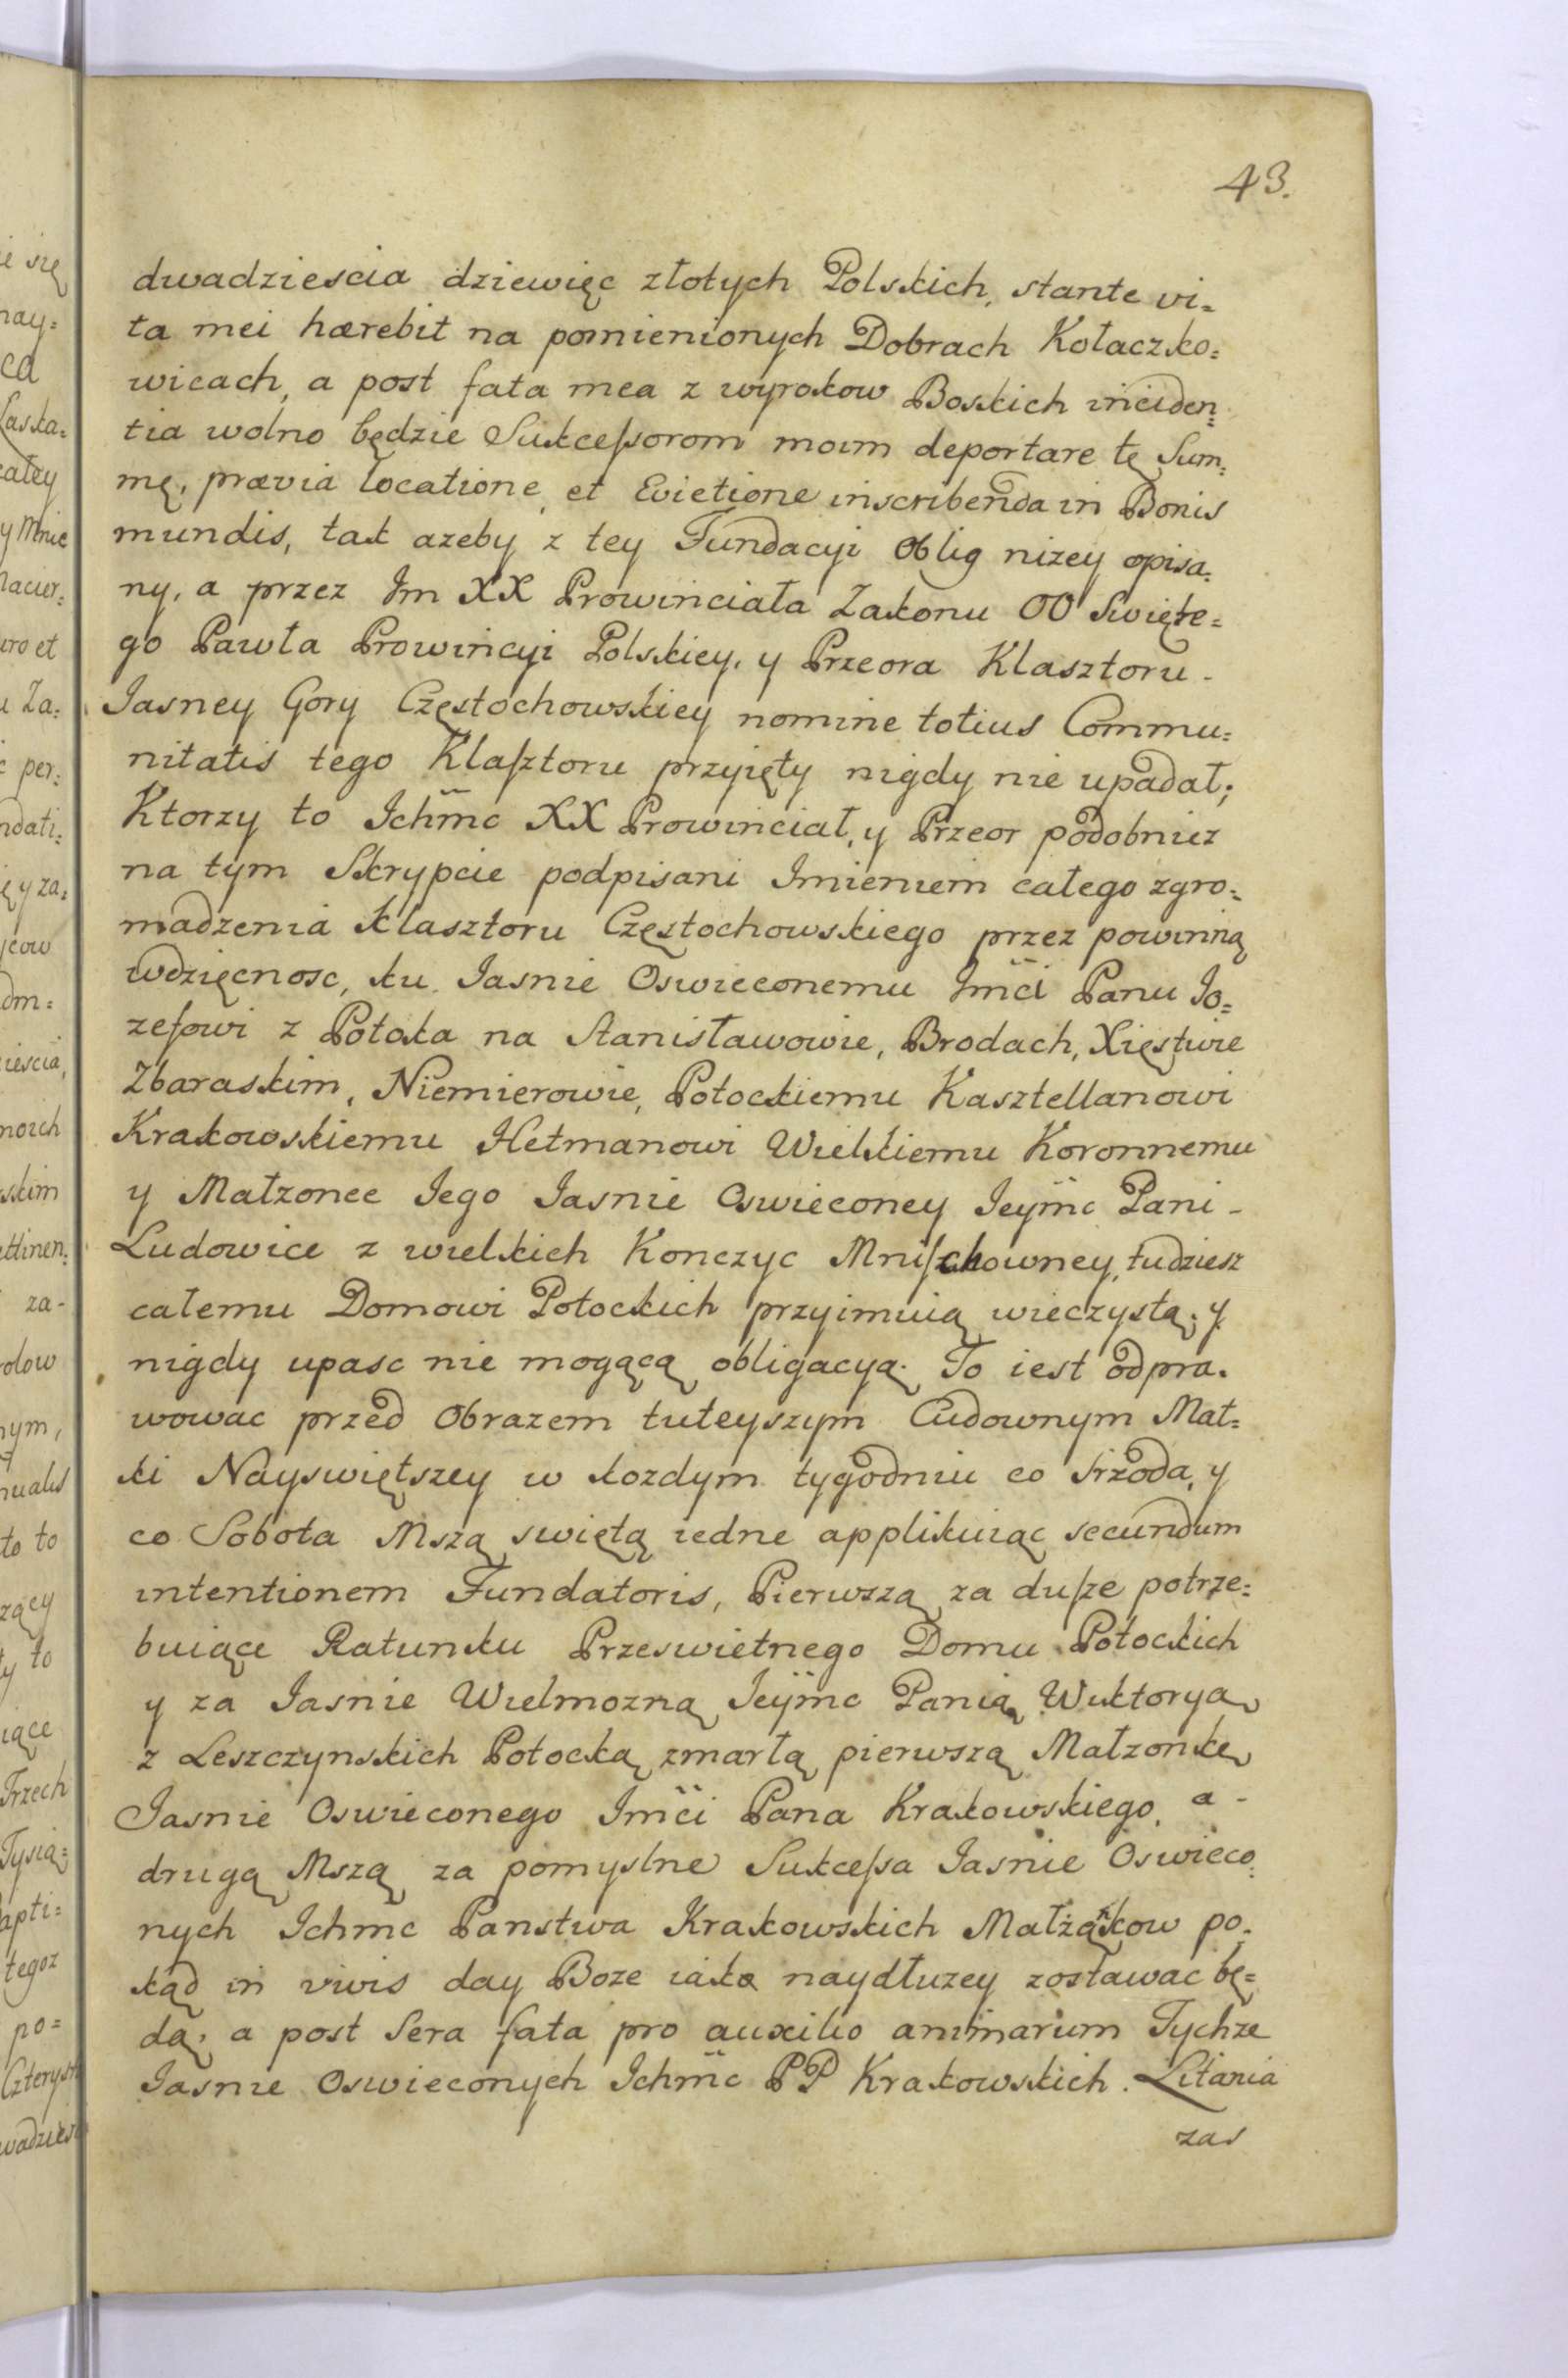 43.
dwadziescia dziewięc złotych Polskich, stante vi=
ta mei hærebit na pomienionych Dobrach Kołaczko=
wicach, a post fata mea z wyrokow Boskich inciden=
tia wolno będzie Sukceſsorom moim deportare tę Sum=
mę, prævia locatione, et Evictione inscribenda in Bonis
mundis, tak azeby z tey Fundacyi Oblig nizey opisa=
ny, a przez Im XX Prowinciała Zakonu OO Swięte=
go Pawła Prowincyi Polskiey, y Przeora Klasztoru -
Jasney Gory Częstochowskiey nomine totius Commu=
nitatis tego Klaſztoru przyięty nigdy nie upadał;
Ktorzy to Ichmc XX Prowinciał, y Przeor podobniez
na tym Skrypcie podpisani Imieniem całego zgro=
madzenia klasztoru Częstochowskiego przez powinną
wdzięcnosc, ku Iasnie Oswieconemu Jmci Panu Jo=
zefowi z Potoka na Stanisławowie, Brodach, Xięstwie
Zbaraskim, Niemierowie, Potockiemu Kasztellanowi
Krakowskiemu Hetmanowi Wielkiemu Koronnemu
y Małzonce Jego Iasnie Oswieconey Jeymc Pani -
Ludowice z wielkich Konczyc Mniſzchowney, tudziesz
całemu Domowi Potockich przyimuią wieczystą, y
nigdy upasc nie mogącą obligacyą. To iest odpra=
wowac przed Obrazem tuteyszym Cudownym Mat=
ki Nayswiętszey w kozdym tygodniu co Srzoda, y
co Sobota Mszą swiętą iedne applikuiąc secundum
intentionem Fundatoris, Pierwszą za duſze potrze=
buiące Ratunku Przeswietnego Domu Potockich
y za Iasnie Wielmozną Jeymc Panią Wiktoryą
z Leszczynskich Potocką zmarłą pierwszą Małzonkę
Jasnie Oswieconego Jmci Pana Krakowskiego, a -
drugą Mszą za pomyslne Sukceſsa Iasnie Oswieco=
nych Ichmc Panstwa Krakowskich Małżąkow po=
kąd in vivis day Boze iako naydłuzey zostawac bę=
dą, a post Sera fata pro auxilio animarum Tychze
Iasnie Oswieconych Ichmc PP Krakowskich. Litania
zas